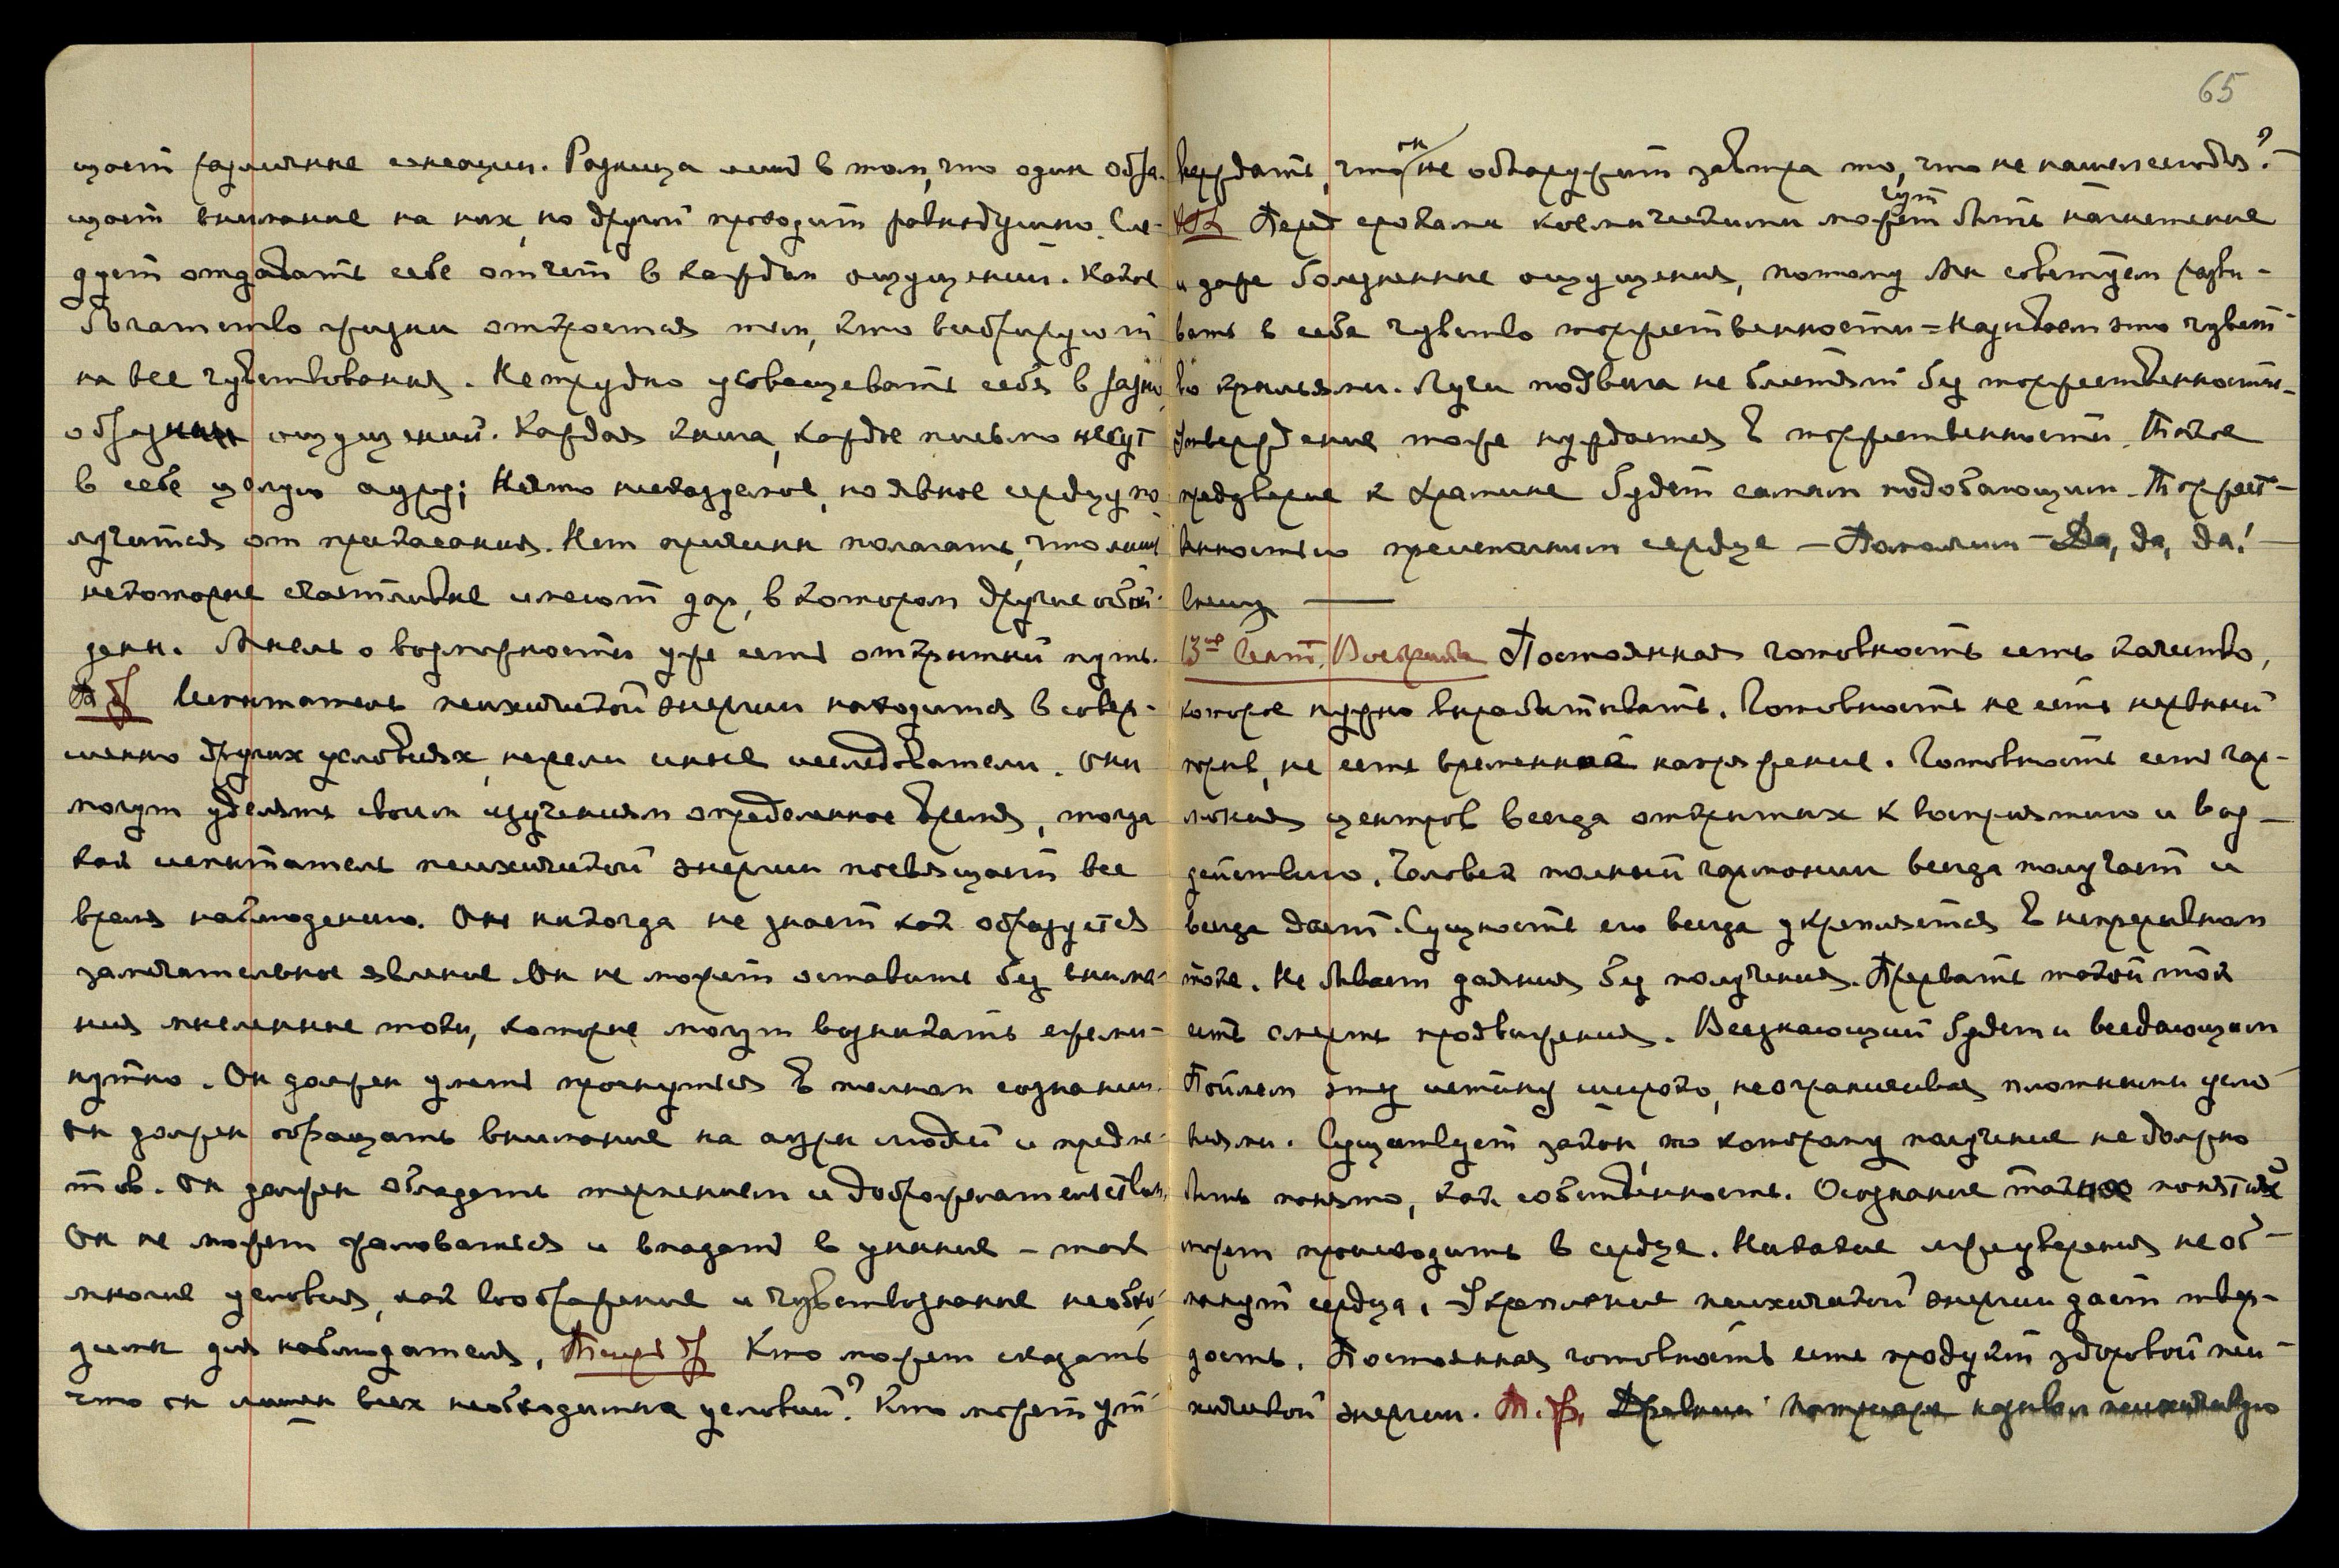 щает различные эманации. Разница лишь в том, что один обра-
щает внимание на них, но другой проходит равнодушно. Сле-
дует отдавать себе отчет в каждом ощущении. Какое
богатство жизни откроется тем, кто вибрирует
на все чувствования. Нетрудно усовещевать себя в разно-
образии ощущений. Каждая книга, каждое письмо несут
в себе целую ауру; нечто невидимое, но явное сердцу по-
лучится от прикасания. Нет причины полагать, что лишь
некоторые счастливые имеют дар, в котором другие обой-
дены. Мысль о возможности уже есть открытый путь.
Испытатель психической энергии находится в совер-
шенно других условиях, нежели иные исследователи. Они
могут уделять своим изучениям определенное время, тогда
как испытатель психической энергии посвящает все
время наблюдению. Он никогда не знает как образуется
замечательное явление. Он не может оставить без внима-
ния мысленные токи, которые могут возникать ежеми-
нутно. Он должен уметь проснуться в полном сознании.
Он должен обращать внимание на ауры людей и предме-
тов. Он должен обладать терпением и доброжелательством.
Он не может жаловаться и впадать в уныние – такие
многие условия, как воображение и чувствознание необхо-
димы для наблюдателя. Кто может сказать
что он лишен всех необходимых условий? Кто может ут-
65
верждать, что он не обнаружит завтра то, что не нашел сегодня? –
Перед сроками космическими может быть нагнетение
чут
и даже болезненные ощущения, потому Мы советуем разви-
вать в себе чувство торжественности – назовем это чувст-
во крыльями. Лучи подвига не блестят без торжественности –
Утверждение тоже нуждается в торжественности. Такое
преддверие к Храмине будет самым подобающим. Торжест-
венностью преисполним сердце – Помолчим – Да, да, да! –
вниз —
13-ое Сент. Воскрес. Постоянная готовность есть качество,
которое нужно вырабатывать. Готовность не есть нервный
порыв, не есть временное напряжение. Готовность есть гар-
мония центров всегда открытых к восприятию и воз-
действию. Человек полный гармонии всегда получает и
всегда дает. Сущность его всегда укрепляется в непрерывном
токе. Не бывает даяния без получения. Прервать такой ток
есть смерть продвижения. Всезнающий будет и вседающим
Поймем эту истину широко, не ограничивая плотными усло-
виями. Существует закон, по которому получение не должно
быть понято, как собственность. Осознание таких понятий
может происходить в сердце. Никакие лжеуверения не об-
манут сердца. Укрепление психической энергии дает твер-
дость. Постоянная готовность есть продукт здоровой пси-
хической энергии. Т. Ф. Древний патриарх называл психическую